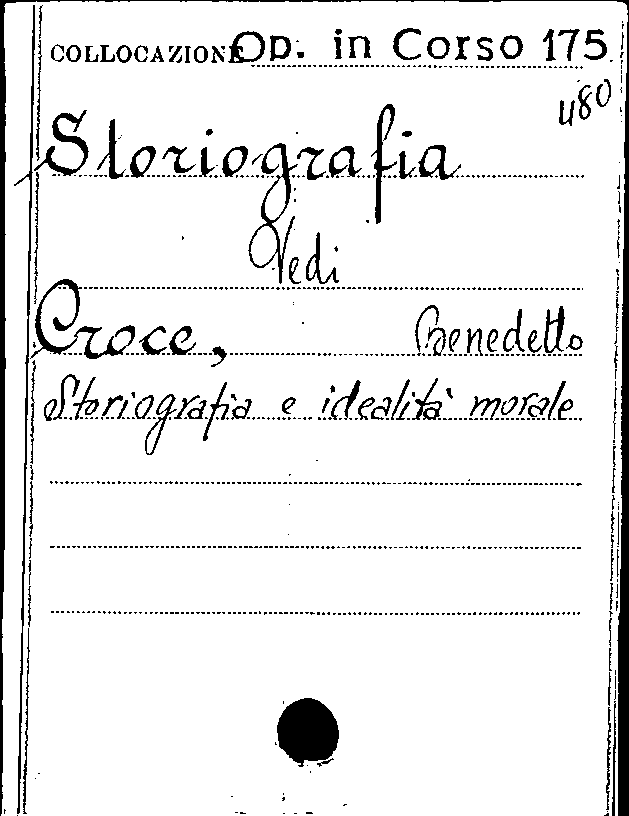 COLLOCAZIONE Op. in Corso 175
480
Storiografia
Vedi
Croce, Benedetto
Storiografia e idealità morale